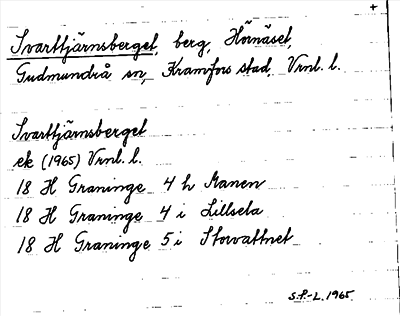 +
Svarttjärnsberget, berg, Hörnäset,
Gudmundrå sn, Kramfors stad, Vrnl. l.
Svarttjärnsberget
ek (1965) Vrnl. l.
18 H Graninge 4 h Manen
18 H Graninge 4 i Lillsela
18 H Graninge 5 i Storvattnet
S.P.-L. 1965